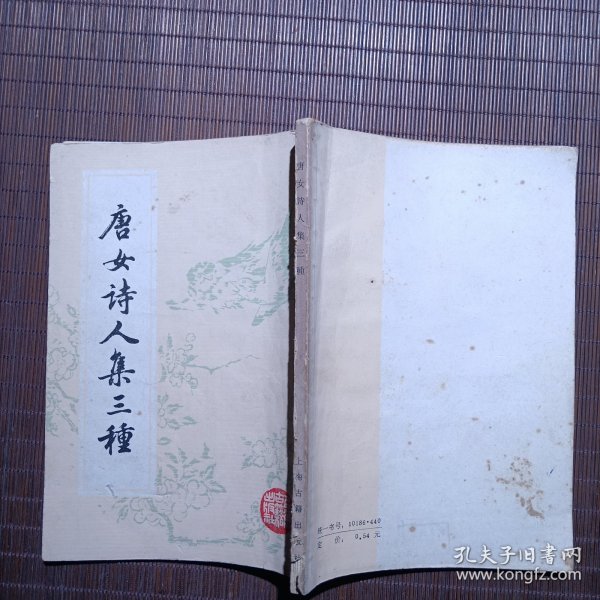 唐女诗人集三種
唐女诗人集三種
上海古籍出版社
统一书号：10186·440
定价：0.54元
孔夫子旧书网
www.kongfz.com